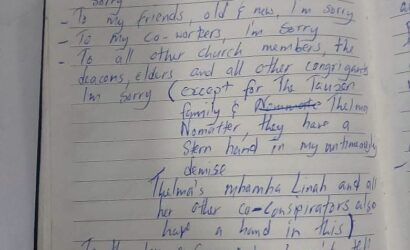 Sorry
- To my friends, old & new, I'm sorry
- To my co-workers, I'm sorry
- To all other church members, the
deacons, elders and all other congrigants
I'm sorry (except for The
family & Thelma
Nomatter, they have a
Stern hand in my
demise
Thelma's mhamha Linah and all
her other co-conspirators also
have a hand in this)